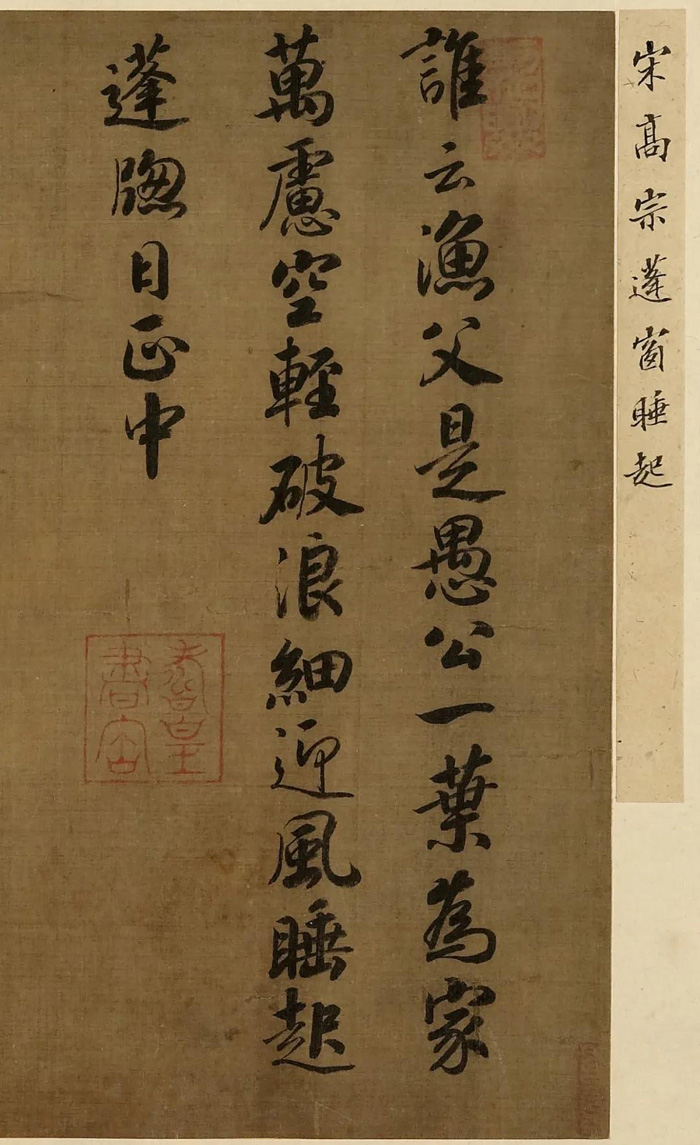 宋高宗蓬窗睡起
誰云漁父是愚公一葉為家
萬慮空輕破浪細迎風睡起
蓬牕日正中